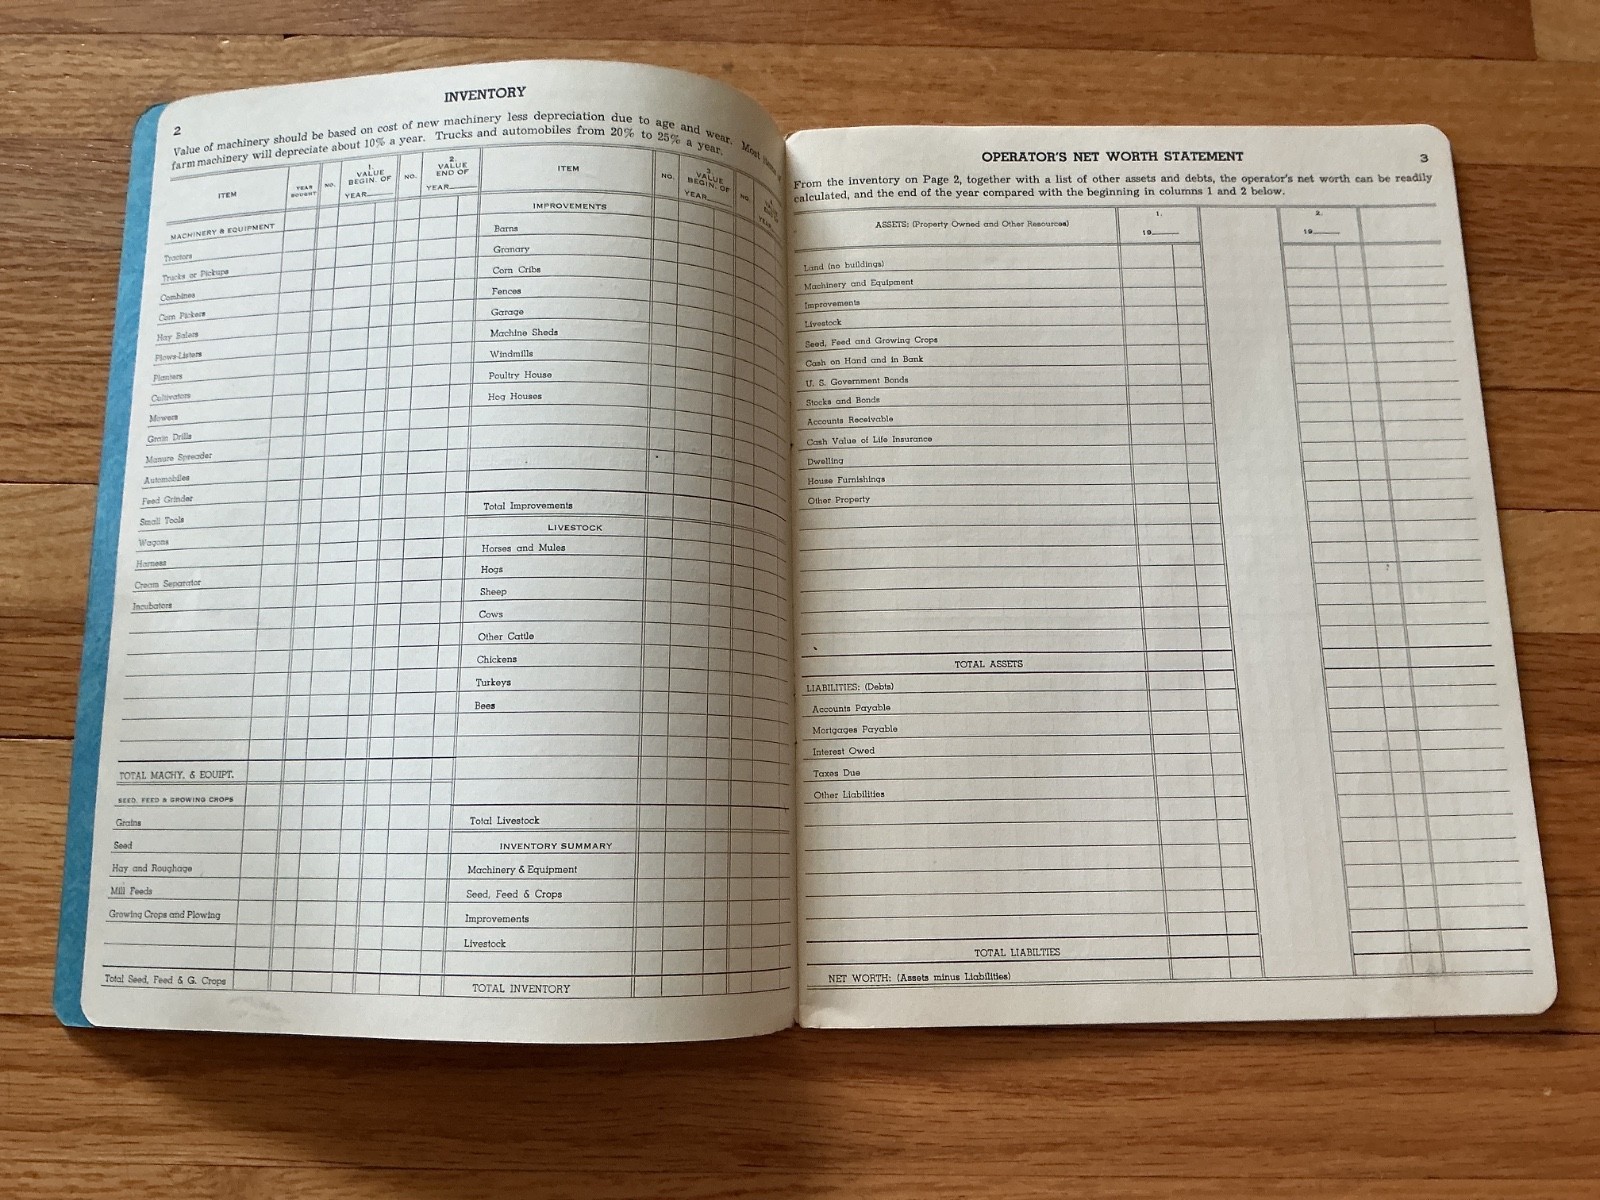 2
INVENTORY
Value of machinery should be based on cost of new machinery less depreciation due to age and wear. Most
farm machinery will depreciate about 10% a year. Trucks and automobiles from 20% to 25% a year.
ITEM
YEAR
BOUGHT
NO.
1.
VALUE
BEGIN. OF
YEAR
NO.
2.
VALUE
END OF
YEAR
MACHINERY & EQUIPMENT
Tractors
Trucks or Pickups
Combines
Corn Pickers
Hay Balers
Plows-Listers
Planters
Cultivators
Mowers
Grain Drills
Manure Spreader
Automobiles
Feed Grinder
Small Tools
Wagons
Harness
Cream Separator
Incubators
TOTAL MACHY. & EQUIPT.
SEED, FEED & GROWING CROPS
Grains
Seed
Hay and Roughage
Mill Feeds
Growing Crops and Plowing
Total Seed, Feed & G. Crops
ITEM
NO.
VALUE
BEGIN. OF
YEAR
NO.
YEAR
IMPROVEMENTS
Barns
Granary
Corn Cribs
Fences
Garage
Machine Sheds
Windmills
Poultry House
Hog Houses
Total Improvements
LIVESTOCK
Horses and Mules
Hogs
Sheep
Cows
Other Cattle
Chickens
Turkeys
Bees
Total Livestock
INVENTORY SUMMARY
Machinery & Equipment
Seed, Feed & Crops
Improvements
Livestock
TOTAL INVENTORY
OPERATOR'S NET WORTH STATEMENT
3
From the inventory on Page 2, together with a list of other assets and debts, the operator's net worth can be readily
calculated, and the end of the year compared with the beginning in columns 1 and 2 below.
ASSETS: (Property Owned and Other Resources)
1.
19
2.
19
Land (no buildings)
Machinery and Equipment
Improvements
Livestock
Seed, Feed and Growing Crops
Cash on Hand and in Bank
U. S. Government Bonds
Stocks and Bonds
Accounts Receivable
Cash Value of Life Insurance
Dwelling
House Furnishings
Other Property
TOTAL ASSETS
LIABILITIES: (Debts)
Accounts Payable
Mortgages Payable
Interest Owed
Taxes Due
Other Liabilities
TOTAL LIABILTIES
NET WORTH: (Assets minus Liabilities)